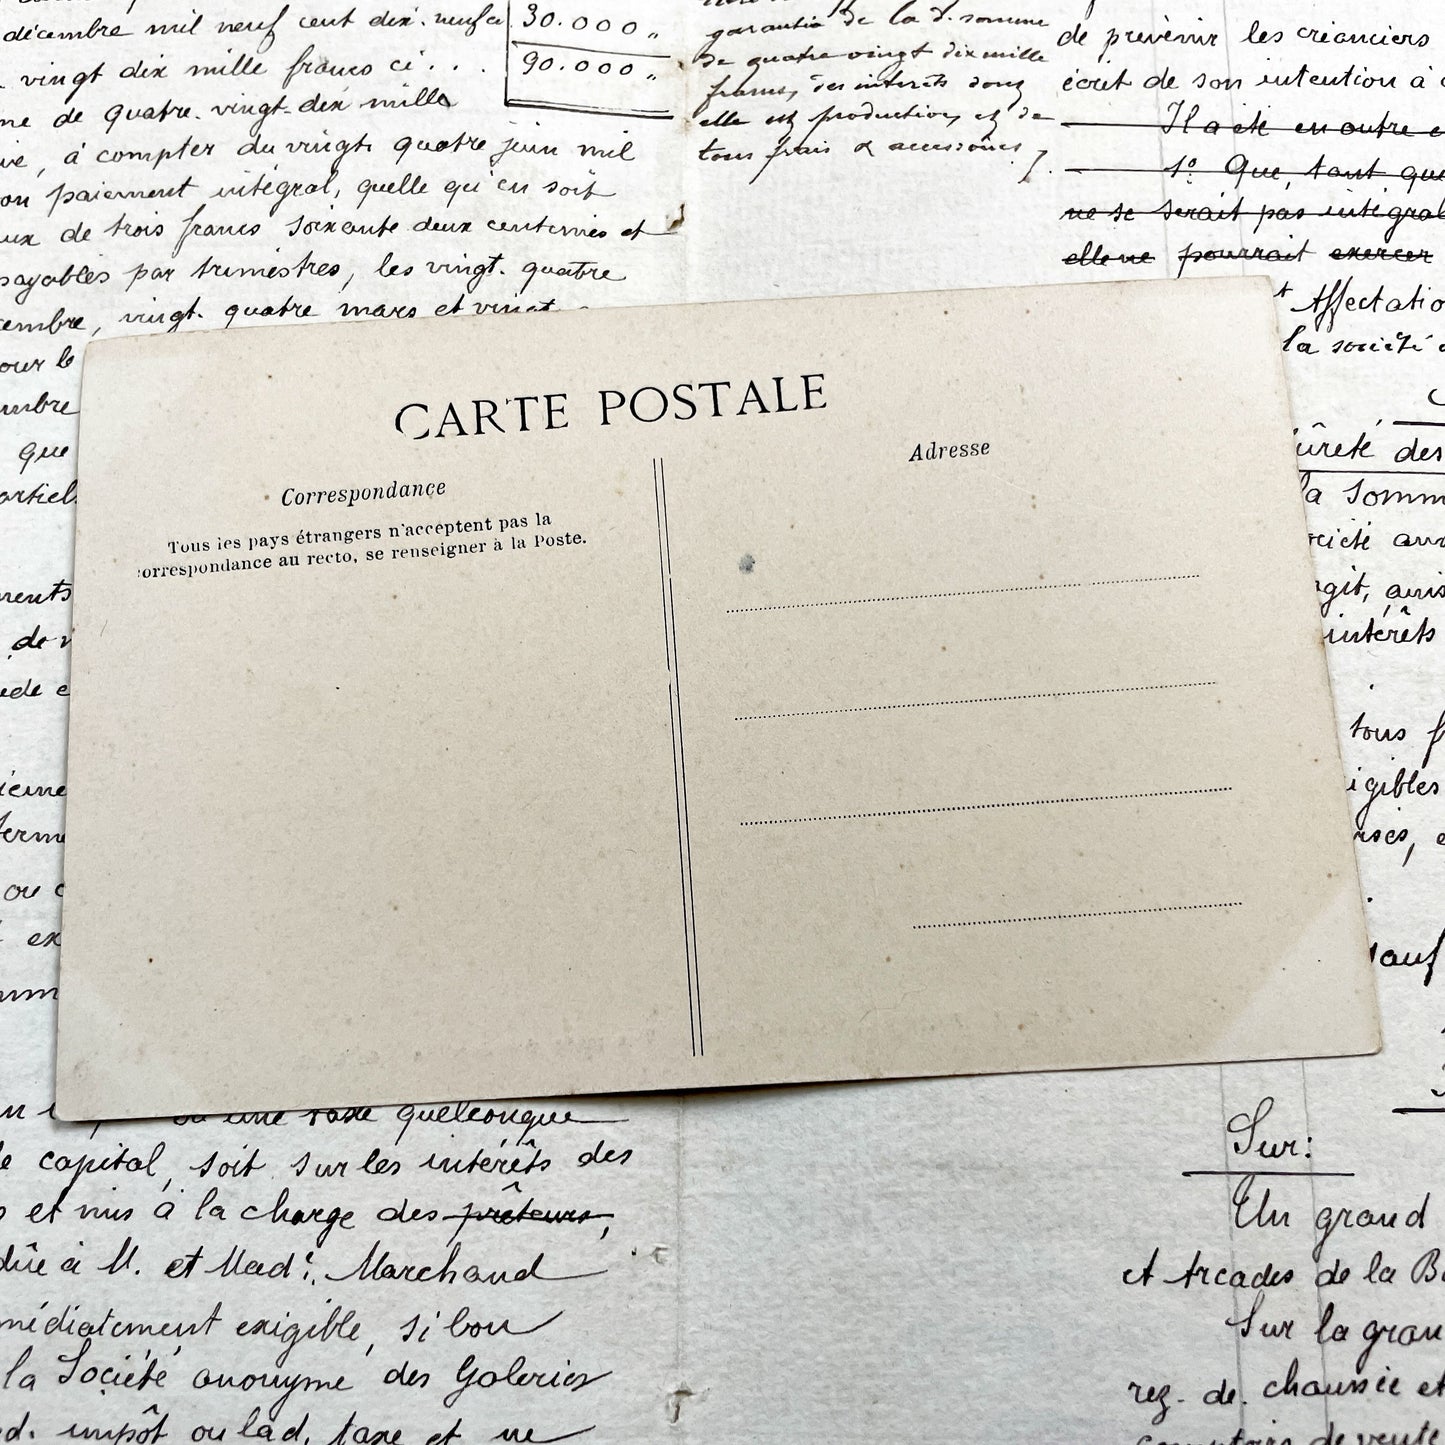 décembre mil neuf cent dix-neuf ci
30.000 "
vingt dix mille francs ci . . .
90.000 "
me de quatre-vingt-dix mille
, à compter du vingt quatre juin mil
paiement intégral, quelle qu'en soit
ux de trois francs soixante deux centimes et
payables par trimestres, les vingt-quatre
cembre, vingt-quatre mars et vingt
our le
mbre
que
artiel
rents
de
ède e
ième
ferme
ou
ex
garantie de la d. somme
de quatre vingt dix mille
francs, des intérêts dont
elle est productive, et de
tous frais & accessoires
de prévenir les créanciers
écrit de son intention à
Il a été en outre
1º Que, tant que
ne se serait pas intégral
elle ne pourrait exercer
Affectatio
la société
CARTE POSTALE
Correspondance
Tous les pays étrangers n'acceptent pas la
correspondance au recto, se renseigner à la Poste.
Adresse
ûreté des
la somm
ociété an
agit, ains
intérêts
tous f
igibles
rses,
sauf
ou une taxe quelconque
e capital, soit sur les intérêts des
s et mis à la charge des prêteurs,
dûe à M. et Made. Marchand
médiatement exigible, si bon
la Société anonyme des Galeries
d. impôt ou lad. taxe et ne
Sur:
Un grand
et Arcades de la B
Sur la gran
rez-de-chaussée et
comptoirs de vente